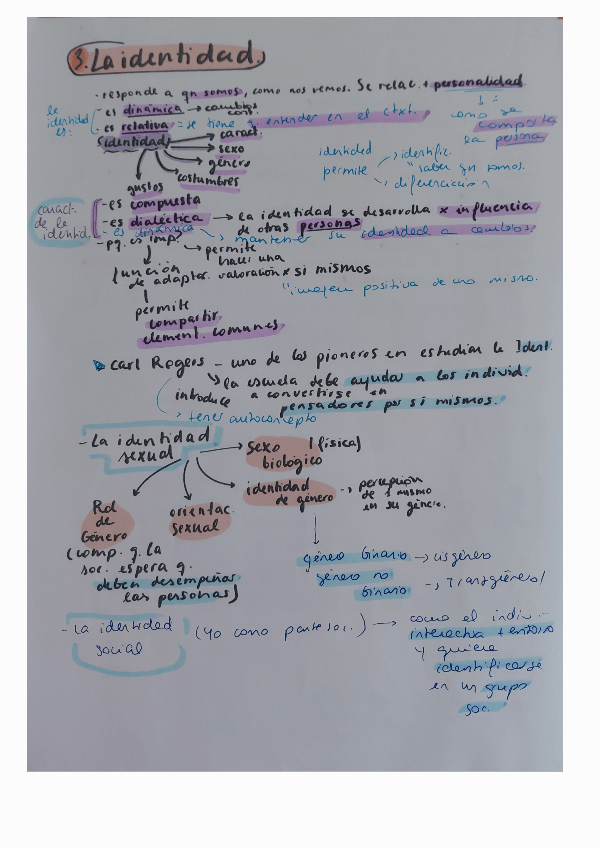 3. La identidad.
- responde a qn somos, como nos vemos. Se relac. + personalidad
↓ =
como se
comporta
la persona
la identidad es:
- es dinámica → cambios const.
- es relativa = se tiene q entender en el ctxt.
identidad
→ caract.
→ sexo
→ género
→ costumbres
gustos
identidad permite
→ identific.
"saber qn somos.
→ diferenciación
caract. de la identid.
- es compuesta
- es dialéctica → la identidad se desarrolla x influencia
de otras personas
- es dinámica → mantener su identidad a cambios
- pq. es imp?
→ permite
hacer una
valoración x si mismos
"imagen positiva de uno mismo.
función
de adaptar.
permite
compartir
element. comunes
Carl Rogers - uno de los pioneros en estudiar la Ident.
↳ la escuela debe ayudar a los individ.
a convertirse en
pensadores por si mismos.
introduce
→ tener autoconcepto
- La identidad
sexual
→ sexo (física)
biológico
identidad
de género → percepción
de 1 mismo
en su género.
Rol
de
Género
(comp. q. la
soc. espera q.
deben desempeñar
las personas)
orientac.
sexual
género binario → cisgénero
género no
binario → Transgénero/
- La identidad
social
(Yo como parte soc.) → como el indiv.
interactua + entorno
y quiere
identificarse
en un grupo
soc.